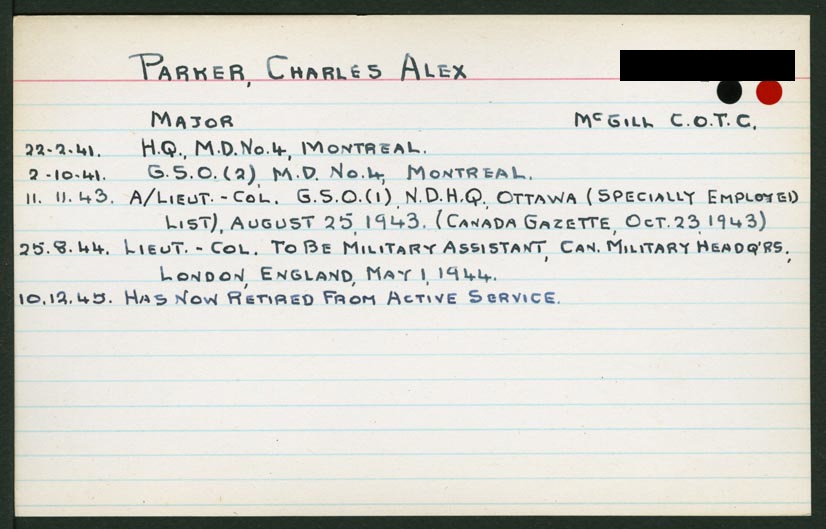 PARKER, CHARLES ALEX
MAJOR McGILL C.O.T.C.
22-2-41. H.Q., M.D. No. 4, MONTREAL.
2-10-41. G.S.O. (2), M.D. No. 4, MONTREAL.
11. 11. 43. A/LIEUT. - COL. G.S.O. (1), N.D.H.Q., OTTAWA (SPECIALLY EMPLOYED
LIST), AUGUST 25, 1943. (CANADA GAZETTE, OCT. 23, 1943)
25. 8. 44. LIEUT. - COL. TO BE MILITARY ASSISTANT, CAN. MILITARY HEADQ'RS.,
LONDON, ENGLAND, MAY 1, 1944.
10. 12. 45. HAS NOW RETIRED FROM ACTIVE SERVICE.